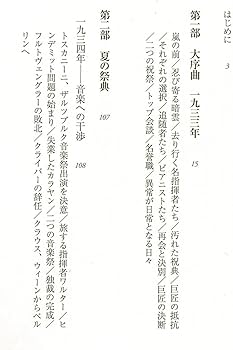 はじめに 3
第一部 大序曲 一九三三年 15
嵐の前／忍び寄る暗雲／去り行く名指揮者たち／汚れた祝典／巨匠の抵抗
／それぞれの選択／追随者たち／ピアニストたち／再会と決別／巨匠の決断
／二つの祝祭／トップ会談／名誉職／異常が日常となる日々
第二部 夏の祭典 107
一九三四年——音楽への干渉 108
トスカニーニ、ザルツブルク音楽祭出演を決意／旅する指揮者ワルター／ヒ
ンデミット問題の始まり／失業したカラヤン／二つの音楽祭／独裁の完成／
フルトヴェングラーの敗北／クライバーの辞任／クラウス、ウィーンからベル
リンへ